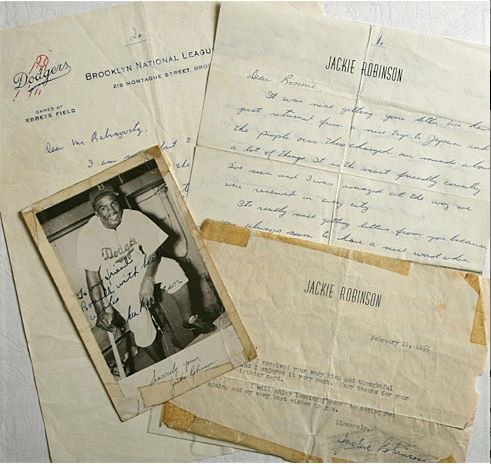 Dodgers
BROOKLYN NATIONAL LEAGUE
215 MONTAGUE STREET
GAMES AT
EBBETS FIELD
Dear Mr. Rabinowitz,
I am
JACKIE ROBINSON
Dear Ronnie
It was nice getting your letter.
just returned from a nice trip to Japan and
the people over there changed our minds about
a lot of things. It is the most friendly country
I've seen and I was amazed at the way we
were received in every city.
It's really nice getting letters from you because
you always seem to have a nice word when
Dodgers
To my friend
Ronald with best
wishes
Jackie Robinson
Sincerely yours
Jackie Robinson
JACKIE ROBINSON
February 11, 1955
received your very kind and thoughtful
and I enjoyed it very much. Many thanks for your
card.
I will enjoy
again, and my very best wishes to you.
Sincerely,
Jackie Robinson